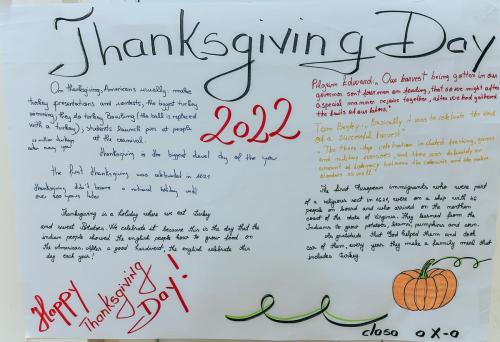 Thanksgiving Day
On thanksgiving, Americans usually make
turkey presentations and contests, the biggest turkey
winning, they do turkey Bowling (the ball is replaced
with a turkey), students launch pies at people
at the carnival.
46 million turkeys
eaten every year!
Thanksgiving is the biggest travel day of the year
The first thanksgiving was celebrated in 1621
thanksgiving didn't become a national holiday until
over 200 years later
Thanksgiving is a holiday where we eat Turkey
and sweet Potatoes. We celebrate it because this is the day that the
indian people showed the english people how to grow food on
the American. After a good handwest, the english celebrate this
day each year!
2022
Pilgrim Edward: "Our harvest being gotten in our
governor sent four men on fowling, that so we might after
a special manner rejoice together, after we had gathered
the fruits of our labors."
Tom Begley: "Basically it was to celebrate the end
of a successful harvest"
"The three-day celebration included feasting, games
and military exercises, and there was definitely an
amount of diplomacy between the colonists and the native
The first European immigrants who were part
of a religious sect in 1621, were on a ship with 46
people on board and who arrived on the northern
coast of the state of Virginia. They learned from the
Indians to grow potatoes, beans, pumpkins and corn.
In gratitude that God helped them and took
car of them, every year they make a family meat that
includes turkey.
Happy
Thanksgiving
Day!
clasa a X-a